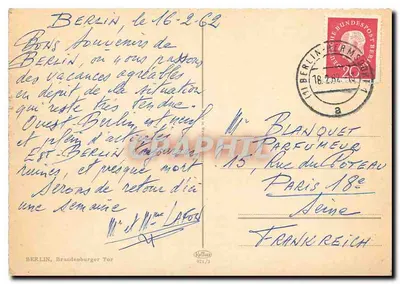 BERLIN, le 16-2-62
BONS Souvenirs de
BERLIN, où nous passons
des vacances agréables
en dépit de la situation
qui reste très tendue.
Ouest-Berlin est neuf
et plein d'
EST-BERLIN
ruines, et presque mort
Serons de retour d'ici
une semaine
Mr et Mme LAFOS
BERLIN, Brandenburger Tor
DEUTSCHE BUNDESPOST BERLIN
20
BERLIN-
18.2.62
a
Mr BLANQUET
PARFUMEUR
15, Rue du POTEAU
PARIS 18e
Seine
FRANKREICH